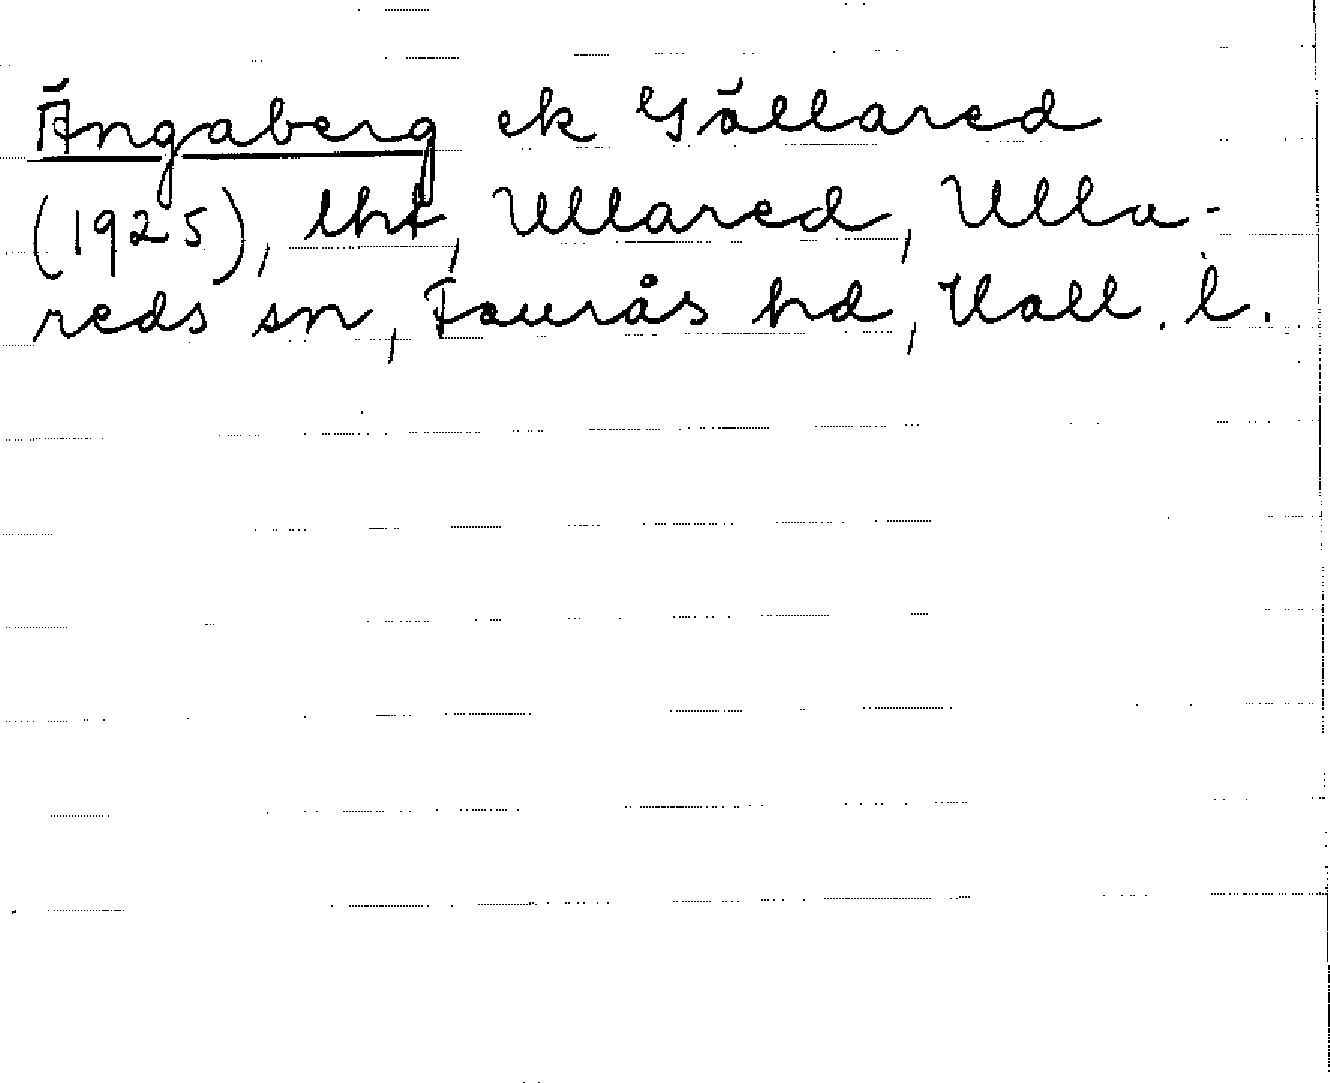 Ängaberg ek Gällared
(1925), lht, Ullared, Ulla-
reds sn, Faurås hd, Hall. l.